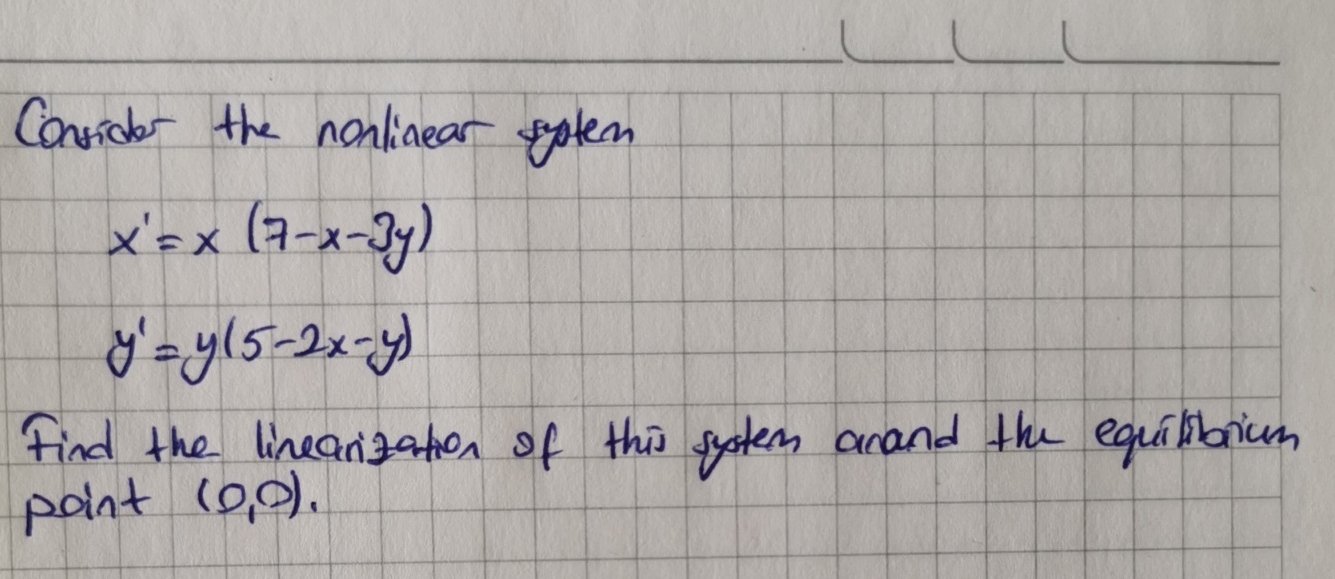 Consider the nonlinear system
x' = x (7-x-3y)
y' = y(5-2x-y)
Find the linearization of this system around the equilibrium
point (0,0).